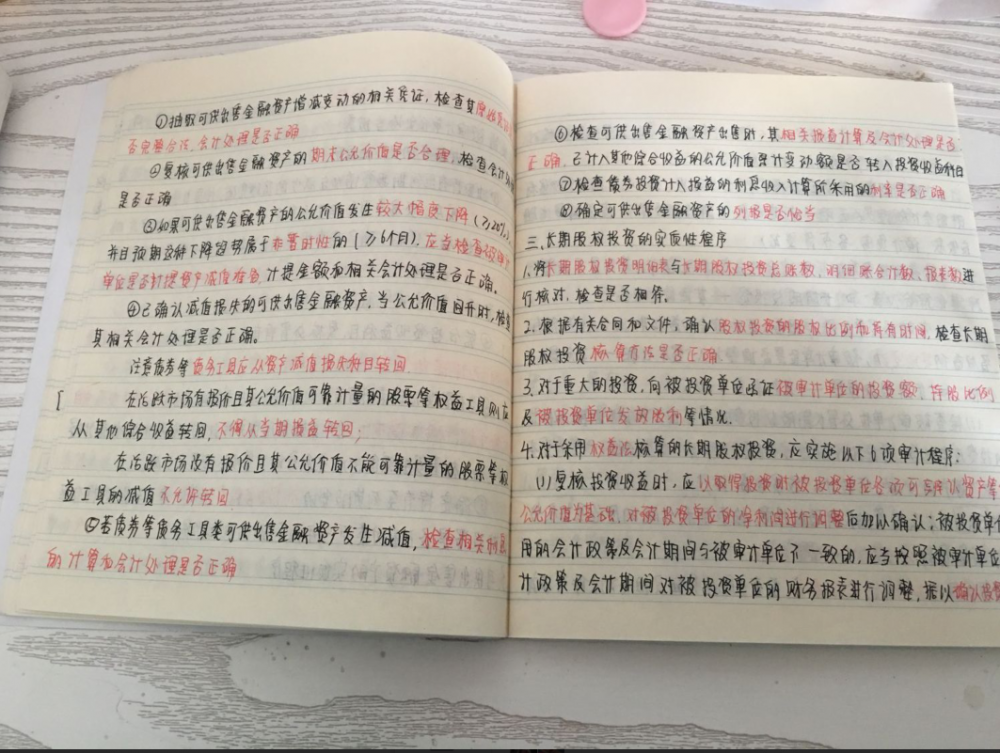 ①抽取可供出售金融资产增减变动的相关凭证，检查其原始凭证
否完整合法，会计处理是否正确
②复核可供出售金融资产的期末公允价值是否合理，检查会计处
是否正确
③如果可供出售金融资产的公允价值发生较大幅度下降（≥20%），
并且预期这种下降趋势属于非暂时性的（≥6个月），应当检查被审计
单位是否计提资产减值准备，计提金额和相关会计处理是否正确。
④已确认减值损失的可供出售金融资产，当公允价值回升时，检查
其相关会计处理是否正确。
注意债券等债务工具应从资产减值损失科目转回
[ 在活跃市场有报价且其公允价值可靠计量的股票等权益工具则应
从其他综合收益转回，不得从当期损益转回；
在活跃市场没有报价且其公允价值不能可靠计量的股票等权
益工具的减值不允许转回
⑤若债券等债务工具类可供出售金融资产发生减值，检查相关利息
的计算和会计处理是否正确
⑥检查可供出售金融资产出售时，其相关损益计算及会计处理是否
正确，已计入其他综合收益的公允价值累计变动额是否转入投资收益科目
⑦检查债券投资计入损益的利息收入计算所采用的利率是否正确
⑧确定可供出售金融资产的列报是否恰当
三、长期股权投资的实质性程序
1、将长期股权投资明细表与长期股权投资总账数、明细账合计数、报表数进
行核对，检查是否相符。
2、根据有关合同和文件，确认股权投资的股权比例和持有时间，检查长期
股权投资核算方法是否正确
3、对于重大的投资，向被投资单位函证被审计单位的投资额、持股比例
及被投资单位发放股利等情况。
4、对于采用权益法核算的长期股权投资，应实施以下6项审计程序：
(1)复核投资收益时，应以取得投资时被投资单位各项可辨认资产等
公允价值为基础，对被投资单位的净利润进行调整后加以确认；被投资单
用的会计政策及会计期间与被审计单位不一致的，应当按照被审计单位
计政策及会计期间对被投资单位的财务报表进行调整，据以确认投资